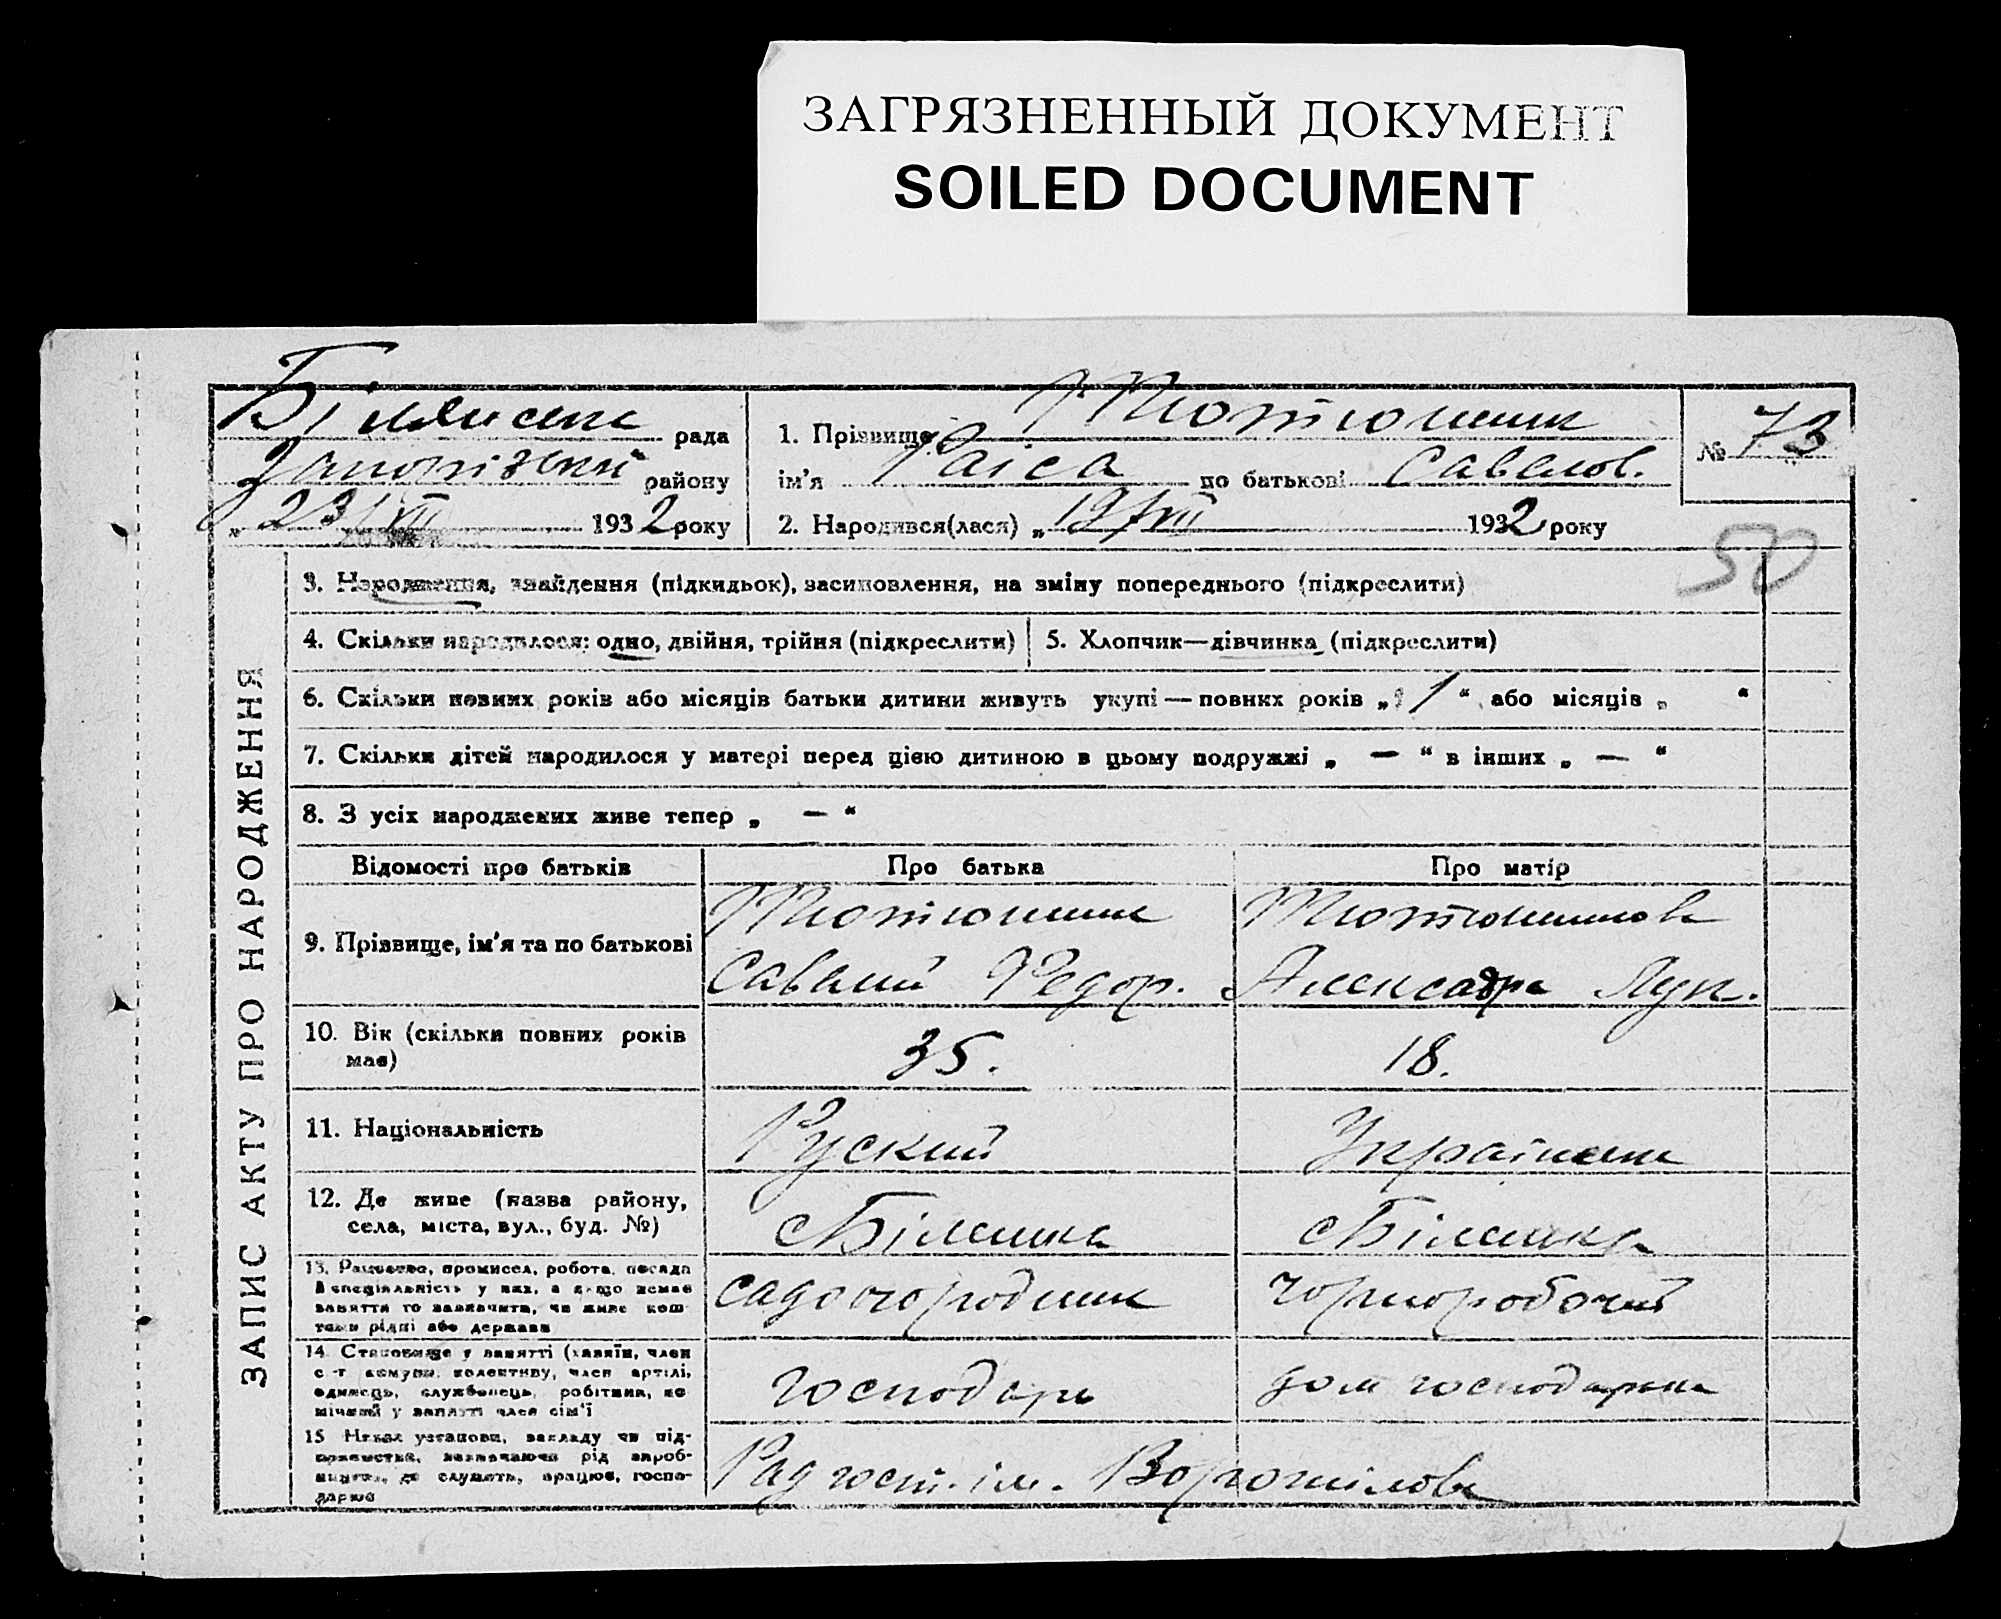 ЗАГРЯЗНЕННЫЙ ДОКУМЕНТ
SOILED DOCUMENT
рада
Запорізький району
„ 23 / VII 1932 року
1. Прізвище Тютюнник
ім'я Раіса по батькові Савелов.
2. Народився(лася) „ 19/VII 1932 року
№ 73
50
ЗАПИС АКТУ ПРО НАРОДЖЕННЯ
3. Народження, знайдення (підкидьок), засиновлення, на зміну попереднього (підкреслити)
4. Скільки народилося: одно, двійня, трійня (підкреслити)
5. Хлопчик—дівчинка (підкреслити)
6. Скільки повних років або місяців батьки дитини живуть укупі — повних років „ 1 “ або місяців „ “
7. Скільки дітей народилося у матері перед цією дитиною в цьому подружжі „ — “ в інших „ — “
8. З усіх народжених живе тепер „ — “
Відомості про батьків
Про батька
Про матір
9. Прізвище, ім'я та по батькові
Тютюнник
Савелий Федор.
Тютюникова
Александра Лук.
10. Вік (скільки повних років
має)
35.
18.
11. Національність
Руский
Українка
12. Де живе (назва району,
села, міста, вул., буд. №)
с Біленика
с Біленика
13. Рамество, промисел, робота, посада
й спеціальність у них, а якщо немає
заняття то зазначити, чи живе кош-
тами рідні або держави
садогородник
чорноробочий
14. Становище у занятті (хазяїн, член
с-г комуни, колективу, член артілі,
одинець, службовець, робітник, по-
мічний у занятті член сім'ї
господарь
дом господарка
15. Назва установи, закладу чи під-
приємства, зазначаючи рід вироб-
ництва, де служить, працює, госпо-
дарює
Рад госп. ім. Ворошілова